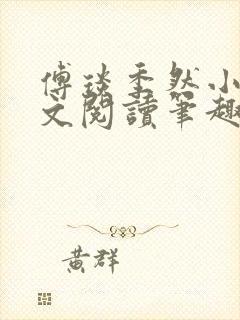 傅琰季然小
文閱讀筆趣
黃群